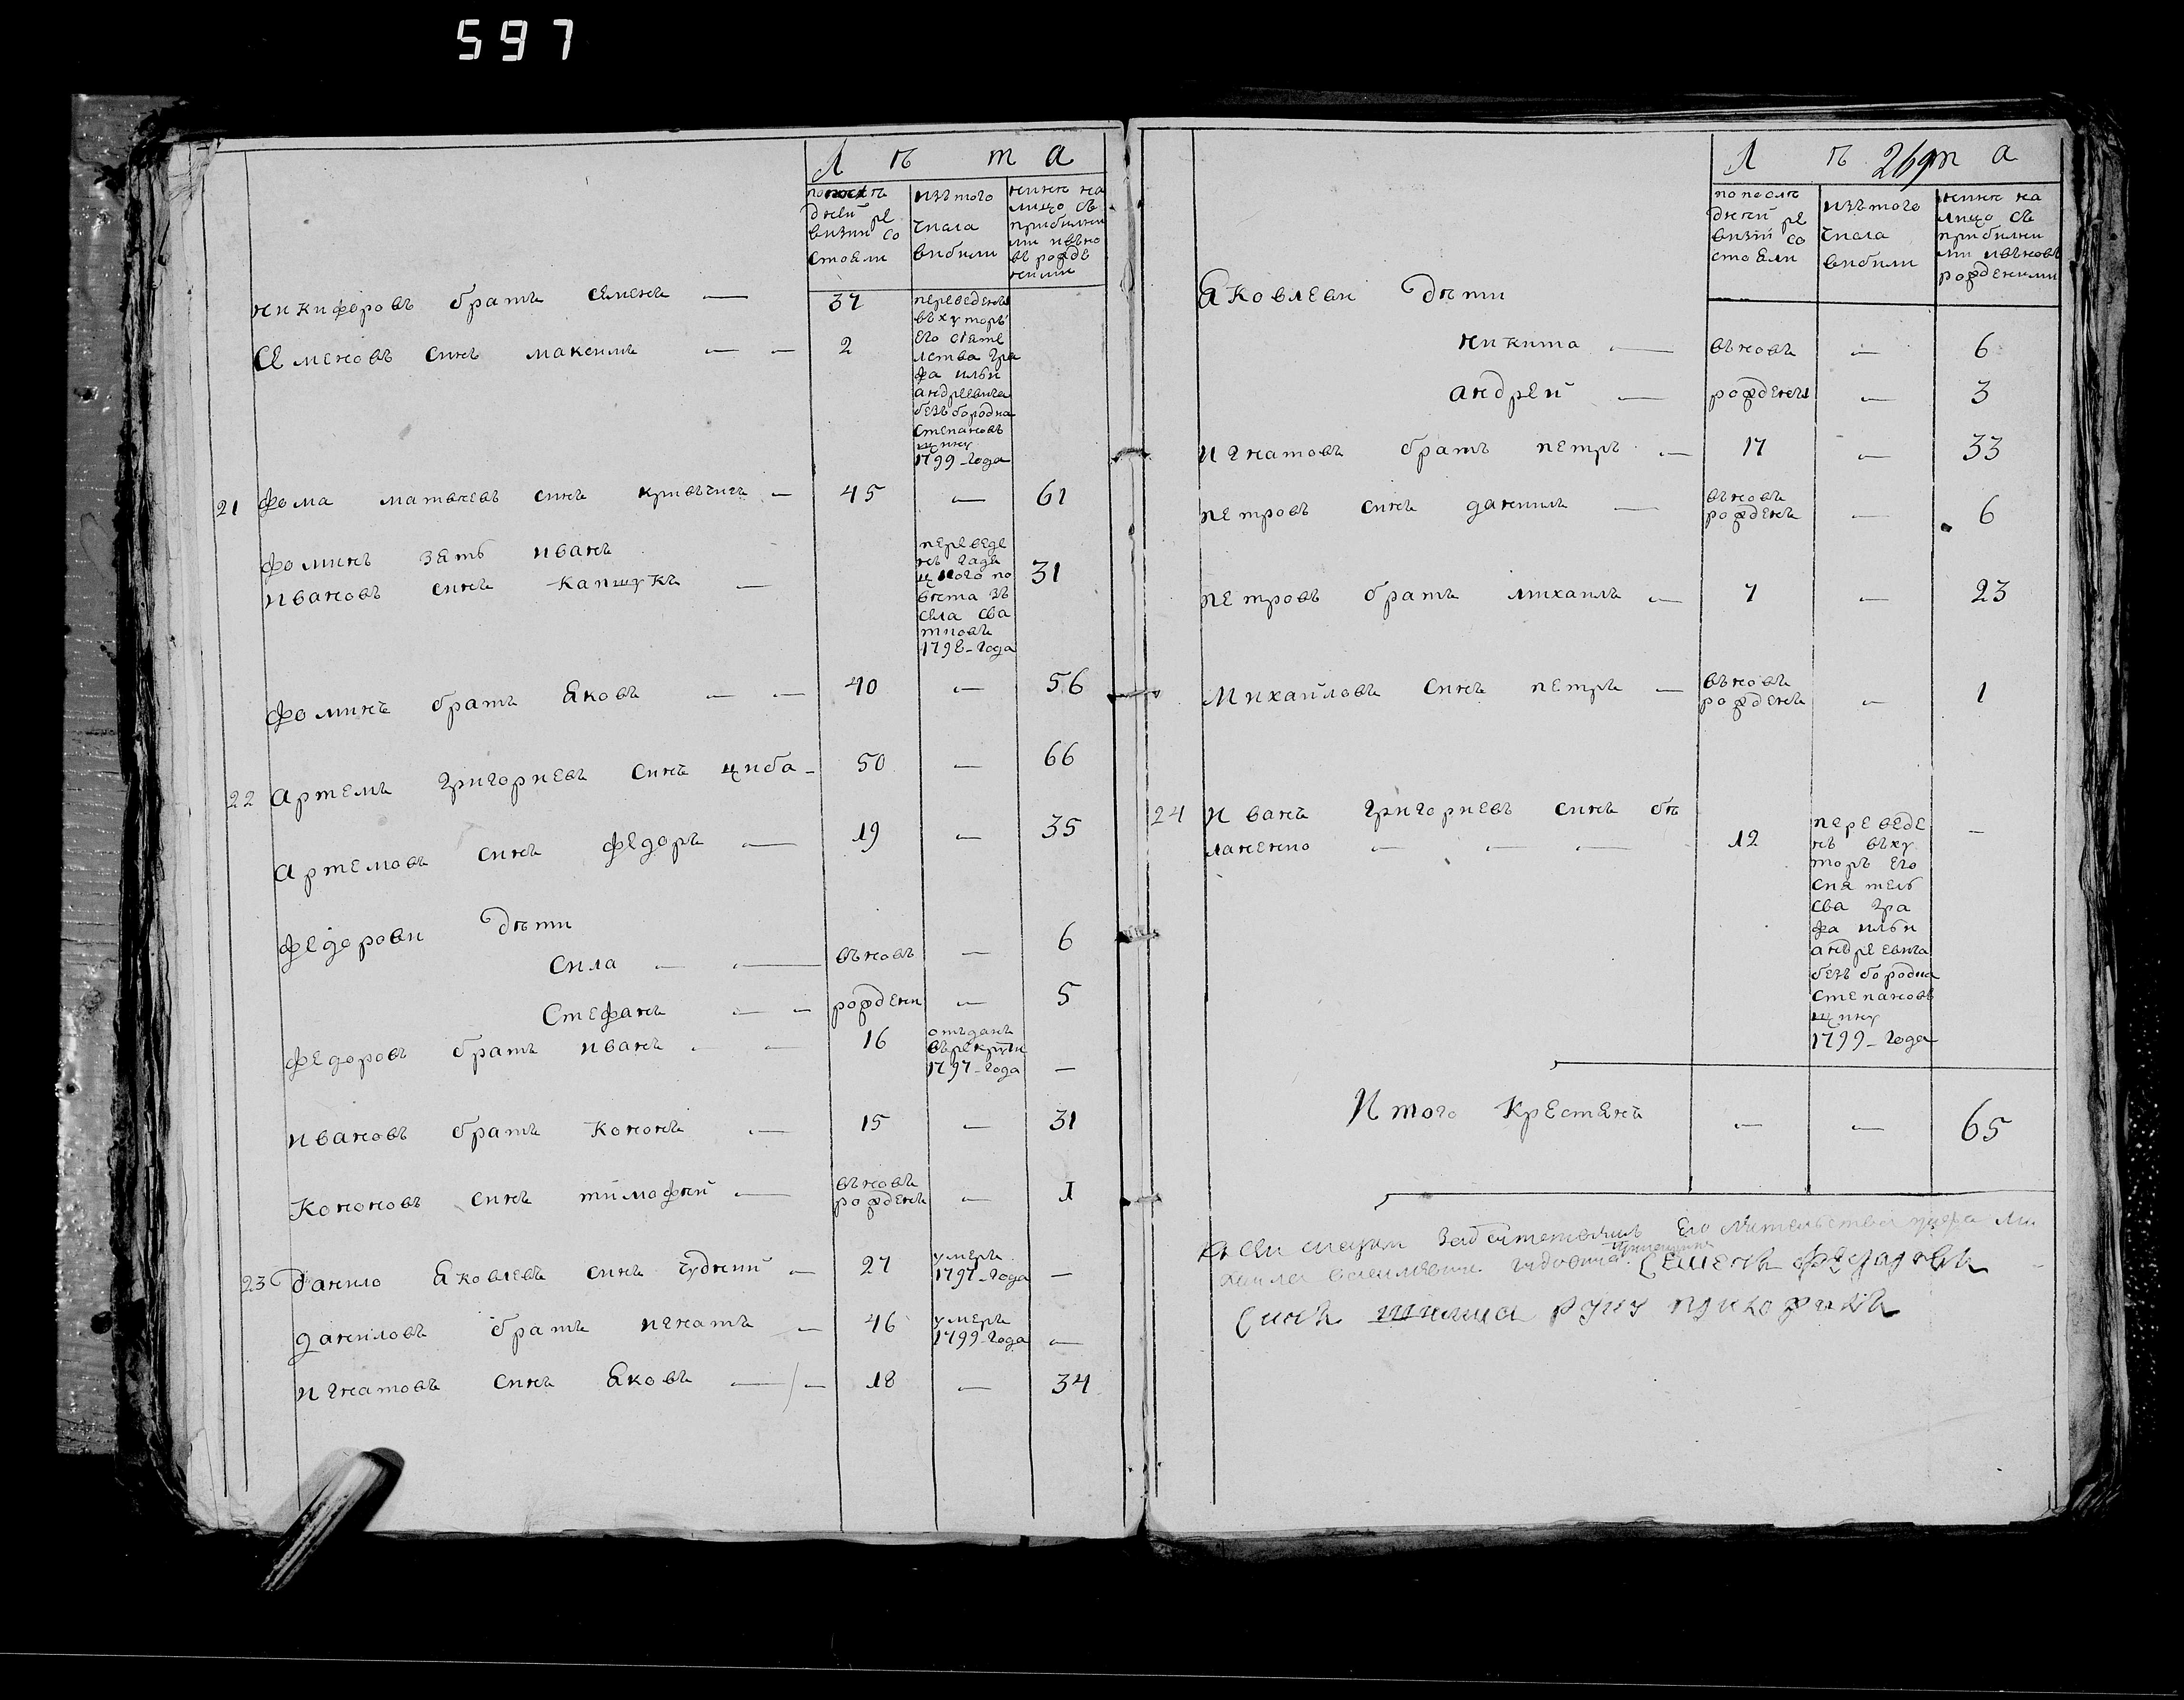 597
Л ѣ т а
по послѣ
дней ре
визіи со
стояли
изъ того
числа
вибили
нинѣ на
лицо съ
прибилни
ми ивъно
въ рожде
ними
никифоровъ братъ семенъ — 37 переведены
въ хуторъ
его сіяте
лства гра
фа ильи
андреевича
безъбородка
степановъ
щину
1799-года
Семеновъ синъ максимъ — — 2
21 фома матвѣевъ синъ — 45 — 61
фоминъ зять иванъ
ивановъ синъ капшукъ — переведе
нъ гадя
цкого по
вѣта зъ
села
1798-года 31
фоминъ братъ яковъ — — 40 — 56
22 артемъ григориевъ синъ циба - 50 — 66
артемовъ синъ федоръ — 19 — 35
федорови дѣти
сила — — въновъ — 6
стефанъ — — рождени — 5
федоровъ братъ иванъ — — 16 отъданъ
въ рекрути
1797-года —
ивановъ братъ кононъ — 15 — 31
кононовъ синъ тимофѣй — въновъ
рожденъ — 1
23 данило яковлевъ синъ чудний — 27 умеръ
1797-года —
даниловъ братъ игнатъ — 46 умеръ
1799-года —
игнатовъ синъ яковъ — — 18 — 34
269
Л ѣ т а
по послѣ
дней ре
визіи со
стояли
изъ того
числа
вибили
нинѣ на
лицо съ
прибилни
ми ивъновъ
рожденими
яковлеви дѣти
никита — въновъ — 6
андрей — рождены — 3
игнатовъ братъ петръ — 17 — 33
петровъ синъ даниилъ — въновъ
рожденъ — 6
петровъ братъ михаилъ — 7 — 23
михайловъ синъ петръ — въновъ
рожденъ — 1
24 иванъ григориевъ синъ бѣ
ланенко — — — 12 переведе
нъ въ ху
торъ его
сия тель
сва гра
фа ильи
андреевича
безъбородка
степановъ
щину
1799-года —
Итого крестянъ — — 65
Къ сей Его
Семенъ
синъ руку приложилъ